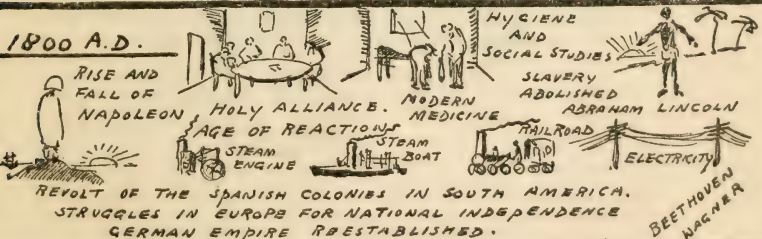 1800 A.D.
RISE AND
FALL OF
NAPOLEON
HOLY ALLIANCE.
AGE OF REACTIONS
MODERN
MEDICINE
HYGIENE
AND
SOCIAL STUDIES
SLAVERY
ABOLISHED
ABRAHAM LINCOLN
STEAM
ENGINE
STEAM
BOAT
RAILROAD
ELECTRICITY
REVOLT OF THE SPANISH COLONIES IN SOUTH AMERICA.
STRUGGLES IN EUROPE FOR NATIONAL INDEPENDENCE
GERMAN EMPIRE REESTABLISHED.
BEETHOVEN
WAGNER